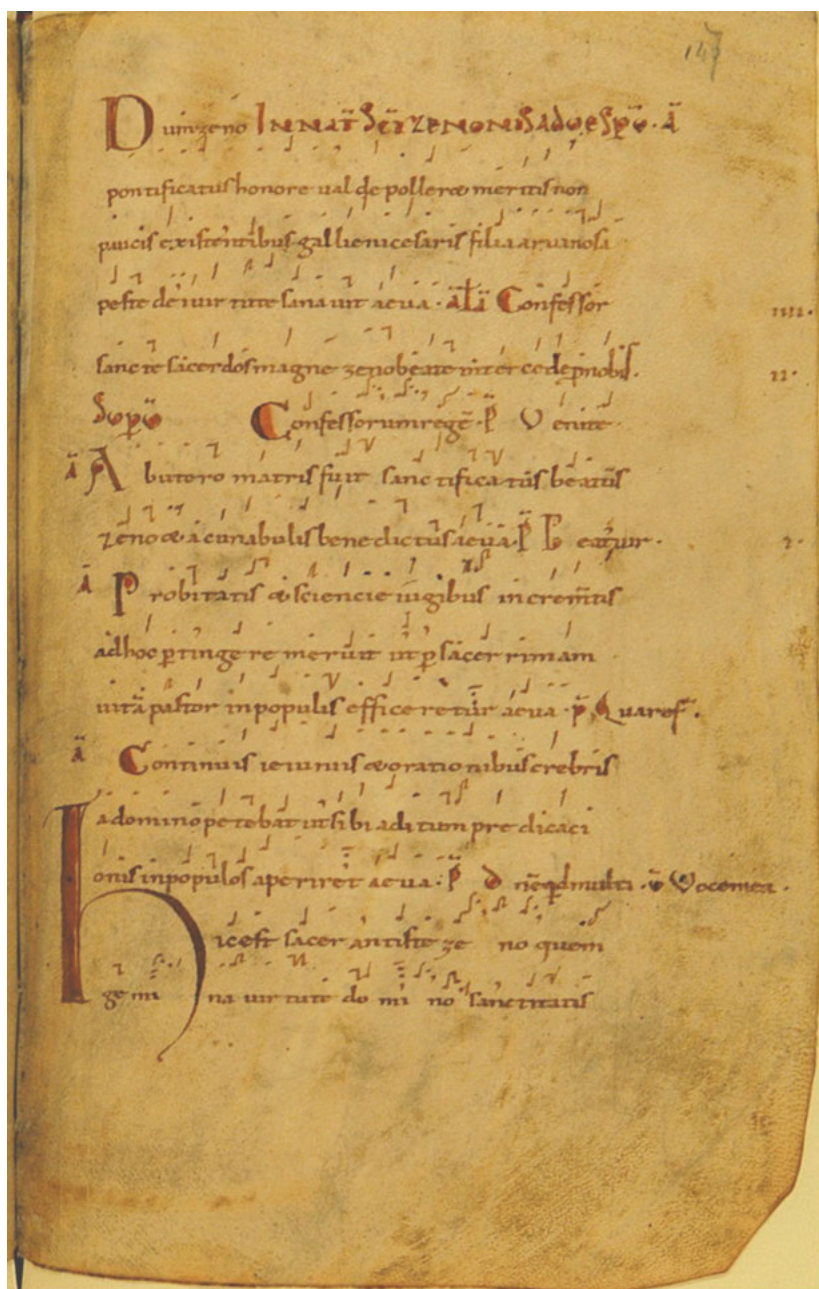 147
Dum zeno IN NAT SCI ZENONIS AD UESPU· A
pontificatus honore ualde polleret meritis non
paucis existentibus gallieni cesaris filia a ruanosa
peste dei uirtute sanauit aeua · ALIA Confessor
IIII·
sancte sacerdos magne zeno beate intercede p nobis.
II·
Confessorum regē · P̄ Uenite ·
Ā Ab utero matris fuit sanctificatus beatus
zeno et a cunabulis benedictus aeuā · P̄ Beatus uir ·
Ā Probitatis et sciencie iugibus incrementis
ad hoc ptingere meruit ut p sacerrimam
uitā pastor in populis efficeretur aeua · P̄ Quare f̄ ·
Ā Continuis ieiuniis et orationibus crebris
a domino petebat ut sibi aditum predicaci
onis in populos aperiret aeua · P̄ D nē qd multi · Uocem mea ·
Hic est sacer antiste zeno quem
gemina uirtute domino sanctitatis